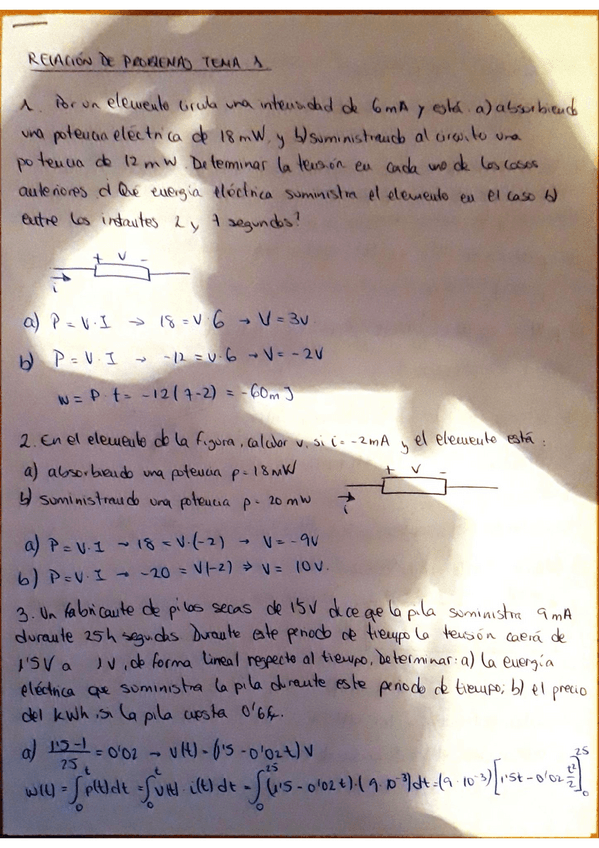 RELACIÓN DE PROBLEMAS TEMA 1
1. Por un elemento circula una intensidad de 6mA y está: a) absorbiendo
una potencia eléctrica de 18mW, y b) suministrando al circuito una
potencia de 12mW. Determinar la tensión en cada uno de los casos
anteriores ¿Qué energía eléctrica suministra el elemento en el caso b)
entre los instantes 2 y 7 segundos?
+ V -
i
a) P = V·I → 18 = V·6 → V = 3V
b) P = V·I → -12 = V·6 → V = -2V
W = P·t = -12(7-2) = -60mJ
2. En el elemento de la figura, calcular v, si i = -2mA y el elemento está:
a) absorbiendo una potencia p = 18mW
+ V -
b) suministrando una potencia p = 20mW
i
a) P = V·I ~ 18 = V·(-2) → V = -9V
b) P = V·I → -20 = V(-2) → V = 10V.
3. Un fabricante de pilas secas de 1'5V dice que la pila suministra 9mA
durante 25h seguidas. Durante este periodo de tiempo la tensión caerá de
1'5V a 1V, de forma lineal respecto al tiempo. Determinar: a) la energía
eléctrica que suministra la pila durante este periodo de tiempo; b) el precio
del kWh, si la pila cuesta 0'6€.
a) (1'5-1)/25 = 0'02 → v(t) = (1'5 - 0'02t) V
w(t) = ∫₀ᵗ p(t)dt = ∫₀ᵗ v(t)·i(t)dt = ∫₀²⁵ (1'5 - 0'02t)·(9·10⁻³)dt = (9·10⁻³)[1'5t - 0'02 t²/2]₀²⁵